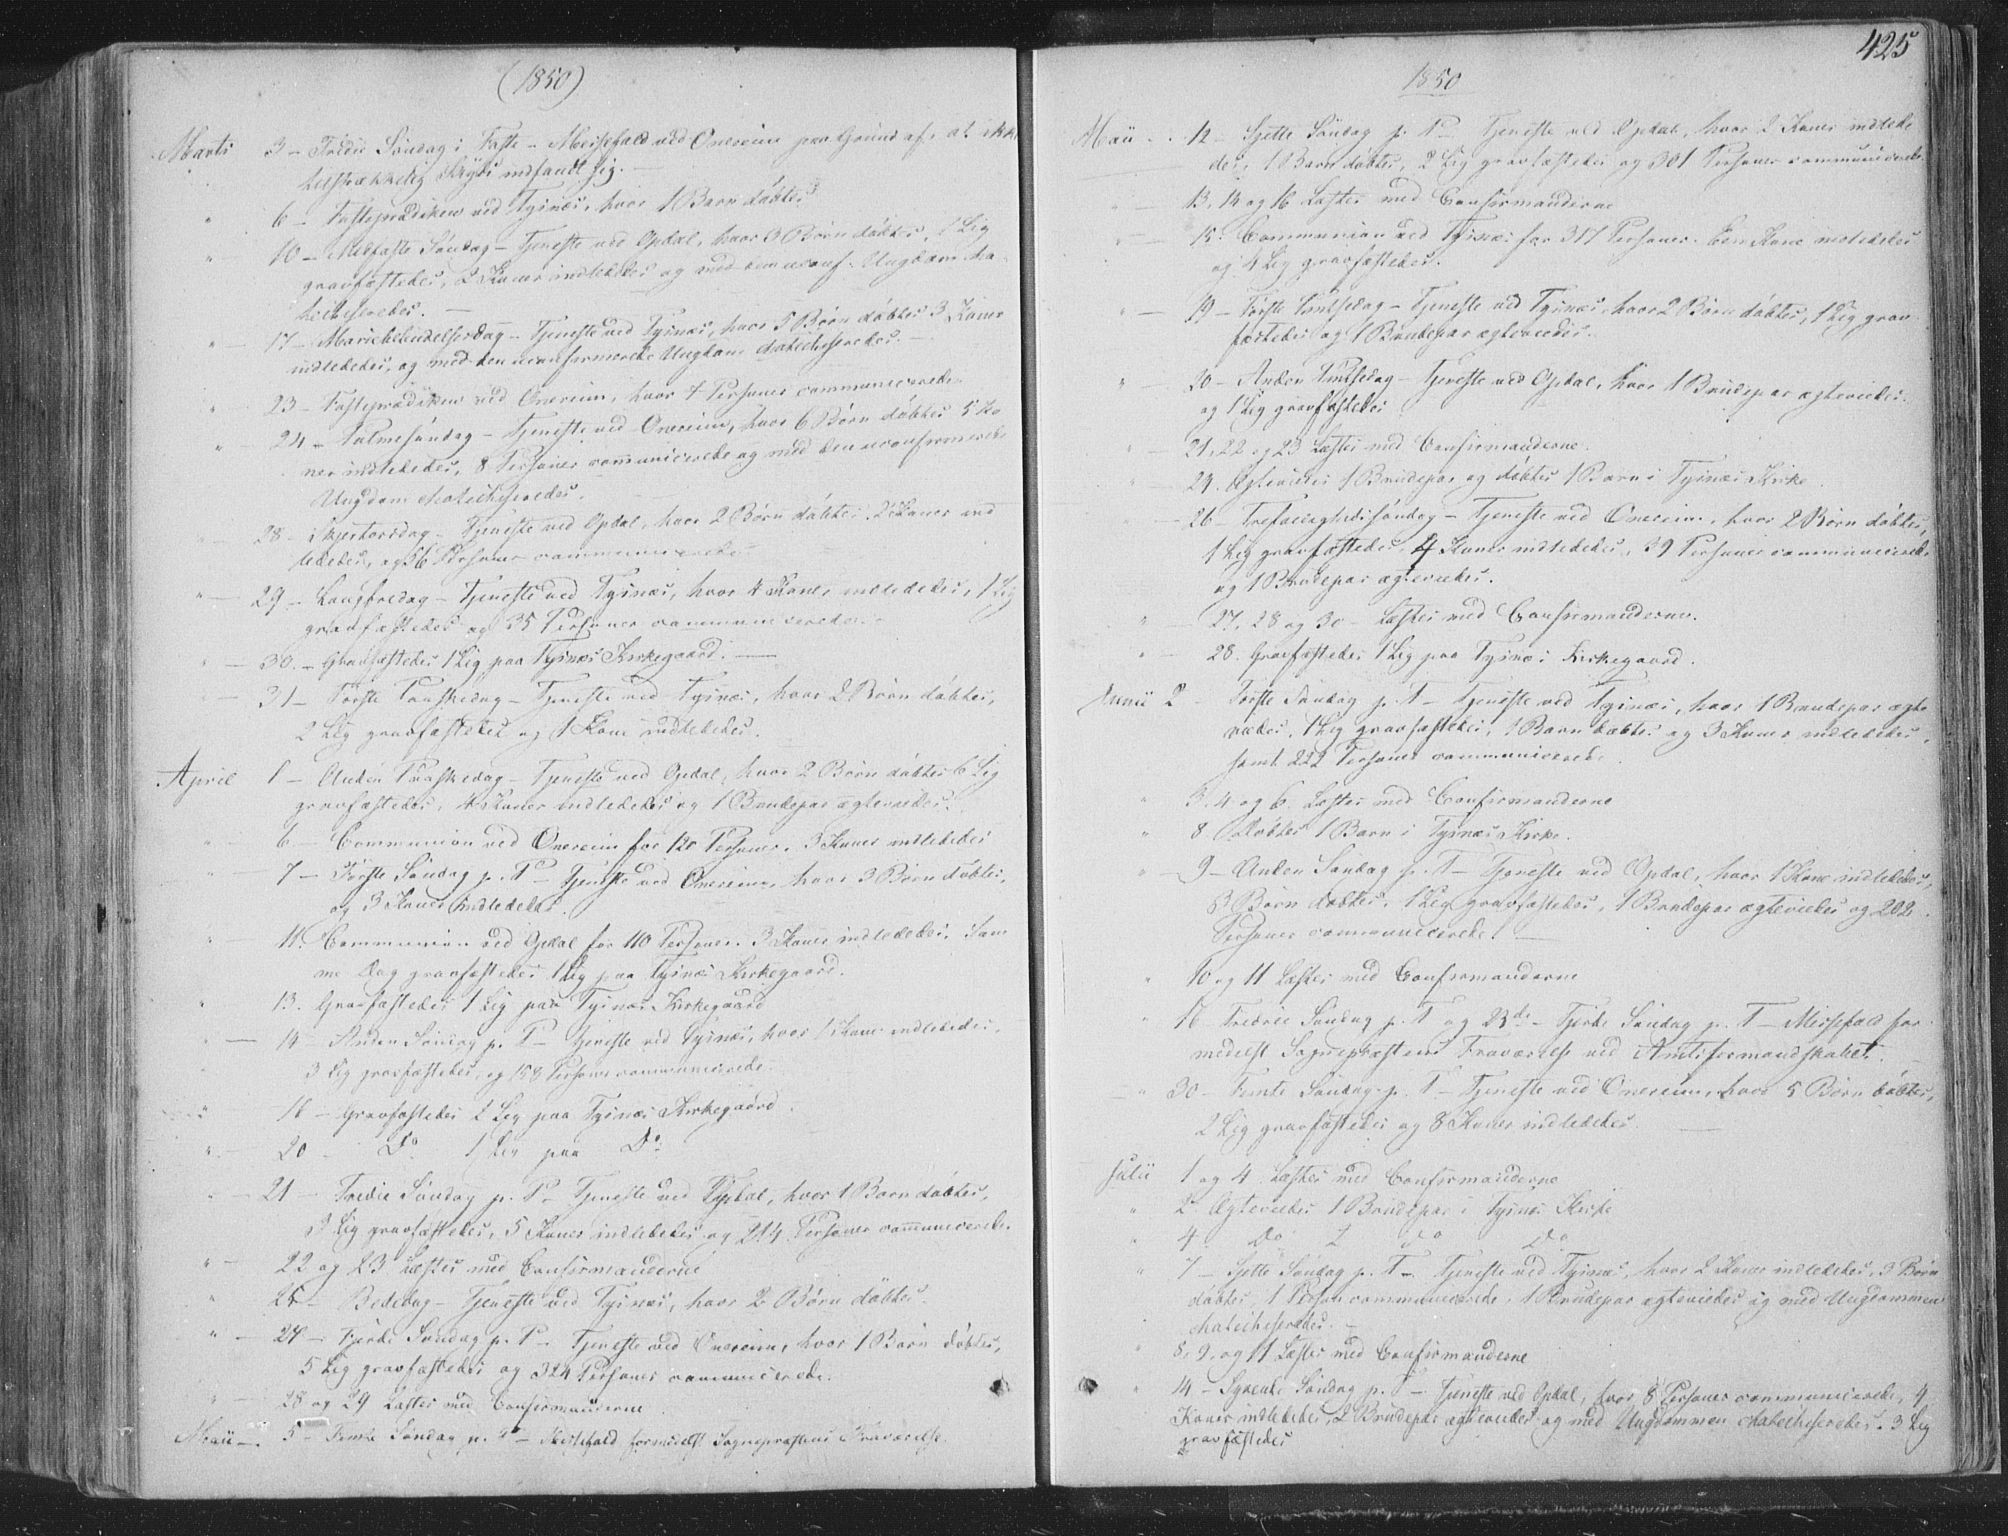 (1850)
Marts 3 – Tredie Søndag i Faste – Messefald ved Onereim paa Grund af, at ikke
tilstrækkelig Skyds indfandt sig. –
" 6 – Fasteprædiken ved Tysnæs, hvor 1 Barn døbtes
" 10 – Midfaste Søndag – Tjeneste ved Opdal, hvor 3 Børn døbtes, 1 Lig
gravfæstedes, 2 Koner indlededes og med den uconf. Ungdom ka-
techiseredes. –
" – 17 – Mariæ Bebudelsesdag – Tjeneste ved Tysnæs, hvor 5 Børn døbtes 3 Koner
indlededes, og med den uconfirmerede Ungdom chatechiseredes. –
" 23 – Fasteprædiken ved Onereim, hvor 4 Personer communicerede
" 24 – Palmesøndag – Tjeneste ved Onereim, hvor 6 Børn døbtes 5 Ko
ner indlededes, 8 Personer communicerede og med den uconfirmerede
Ungdom chatechiseredes.
" – 28 – Skjertorsdag – Tjeneste ved Opdal, hvor 2 Børn døbtes, 2 Koner ind
lededes, og 56 Personer communicerede
" – 29 – Langfredag – Tjeneste ved Tysnæs, hvor 4 Koner indlededes, 1 Lig
gravfæstedes og 35 Personer communicerede. –
" – 30 – Gravfæstedes 1 Lig paa Tysnæs Kirkegaard. –
– 31 – Første Paaskedag – Tjeneste ved Tysnæs, hvor 2 Børn døbtes,
2 Lig gravfæstedes og 1 Kone indlededes.
April 1 – Anden Paaskedag – Tjeneste ved Opdal, hvor 2 Børn døbtes 6 Lig
gravfæstedes, 4 Koner indlededes og 1 Brudepar ægteviedes.
" – 6 – Communion ved Onereim for 120 Personer. 3 Koner indlededes
" – 7 – Første Søndag p. P – Tjeneste ved Onereim, hvor 3 Børn døbtes,
og 3 Koner indlededes.
" – 11. Communion ved Opdal for 110 Personer. 3 Koner indlededes. Sam
me Dag gravfæstedes 1 Lig paa Tysnæs Kirkegaard.
" 13. Gravfæstedes 1 Lig paa Tysnæs Kirkegaard
" – 14 – Anden Søndag p. P – Tjeneste ved Tysnæs, hvor 1 Kone indlededes,
3 Lig gravfæstedes, og 158 Personer communicerede.
" 16 – Gravfæstedes 2 Lig paa Tysnæs Kirkegaard.
" – 20 – Do 1 Lig paa Do
" – 21 – Tredie Søndag p. P – Tjeneste ved Opdal, hvor 1 Barn døbtes,
3 Lig gravfæstedes, 5 Koner indlededes og 214 Personer communicerede.
" – 22 og 23 Læstes med Confirmanderne
" 26 – Bededag – Tjeneste ved Tysnæs, hvor 2 Børn døbtes.
" – 28 – Fjerde Søndag p. P – Tjeneste ved Onereim, hvor 1 Barn døbtes,
5 Lig gravfæstedes og 324 Personer communicerede.
" – 28 og 29 Læstes med Confirmanderne
Maii – 5 – Femte Søndag p. P – Messefald formedelst Sognepræstens Fraværelse.
425
1850
Maii – 12 – Sjette Søndag p. P – Tjeneste ved Opdal, hvor 2 Koner indlede
des, 1 Barn døbtes, 2 Lig gravfæstedes og 301 Personer communicerede
" – 13, 14 og 16 Læstes med Confirmanderne
" – 15. Communion ved Tysnæs for 317 Personer. Een Kone indlededes
og 4 Lig gravfæstedes.
" – 19 – Første Pintsedag – Tjeneste ved Tysnæs, hvor 2 Børn døbtes, 1 Lig grav-
fæstedes og 1 Brudepar ægteviedes.
" – 20 – Anden Pintsedag – Tjeneste ved Opdal, hvor 1 Brudepar ægteviedes.
og 1 Lig gravfæstedes
" – 21, 22 og 23 Læstes med Confirmanderne.
" – 24. Ægteviedes 1 Brudepar og døbtes 1 Barn i Tysnæs Kirke.
" – 26 – Trefoldighedssøndag – Tjeneste ved Onereim, hvor 2 Børn døbtes,
1 Lig gravfæstedes, 4 Koner indlededes, 39 Personer communicerede
og 1 Brudepar ægteviedes.
" – 27, 28 og 30 – Læstes med Confirmanderne.
" – 28. Gravfæstedes 1 Lig paa Tysnæs Kirkegaard.
Junii 2 – Første Søndag p. T – Tjeneste ved Tysnæs, hvor 1 Brudepar ægte
viedes, 1 Lig gravfæstedes, 1 Barn døbtes og 3 Koner indlededes,
samt 222 Personer communicerede.
" 3, 4 og 6. Læstes med Confirmanderne
" 8. Døbtes 1 Barn i Tysnæs Kirke.
" – 9 – Anden Søndag p. T – Tjeneste ved Opdal, hvor 1 Kone indlededes,
3 Børn døbtes, 1 Lig gravfæstedes, 1 Brudepar ægteviedes og 202
Personer communicerede. –
" 10 og 11 Læstes med Confirmanderne
" 16 Tredie Søndag p. T og 23de – Fjerde Søndag p. T – Messefald for-
medelst Sognepræstens Fraværelse ved Amtsformandskabet.
– " 30 – Femte Søndag p. T – Tjeneste ved Onereim, hvor 5 Børn døbtes,
2 Lig gravfæstedes og 8 Koner indlededes. –
Julii 1 og 4 Læstes med Confirmanderne
" 2. Ægteviedes 1 Brudepar i Tysnæs Kirke
" 4. Do 2 Do Do
" 7 – Sjette Søndag p. T – Tjeneste ved Tysnæs, hvor 2 Koner indlededes, 3 Børn
døbtes, 1 Person communicerede, 1 Brudepar ægteviedes og med Ungdommen
chatechiseredes. –
" 8, 9, og 11 Læstes med Confirmanderne
" 14 – Syvende Søndag p. T – Tjeneste ved Opdal, hvor 8 Personer communicerede, 4
Koner indlededes, 2 Brudepar ægteviedes og med Ungdommen chatechiseredes. 3 Lig
gravfæstedes